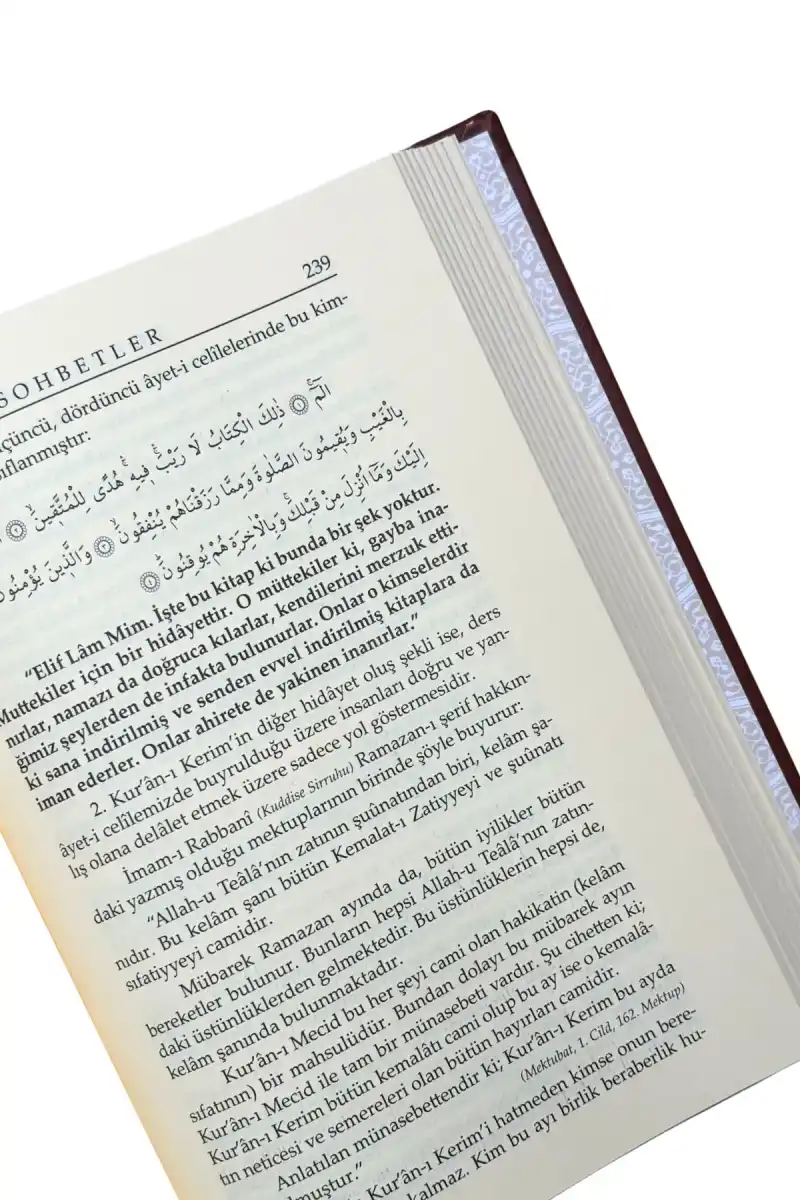 239
SOHBETLER
çüncü, dördüncü âyet-i celîlelerinde bu kim-
ıflanmıştır:
الٓمٓ ﴿١﴾ ذٰلِكَ الْكِتَابُ لَا رَيْبَ ۛ فٖيهِ ۛ هُدًى لِلْمُتَّقٖينَ ﴿٢﴾
بِالْغَيْبِ وَيُقٖيمُونَ الصَّلٰوةَ وَمِمَّا رَزَقْنَاهُمْ يُنْفِقُونَ ﴿٣﴾ وَالَّذٖينَ يُؤْمِنُونَ
اِلَيْكَ وَمَٓا اُنْزِلَ مِنْ قَبْلِكَ وَبِالْاٰخِرَةِ هُمْ يُوقِنُونَ ﴿٤﴾
“Elif Lâm Mim. İşte bu kitap ki bunda bir şek yoktur.
Muttekiler için bir hidâyettir. O müttekiler ki, gayba ina-
nırlar, namazı da doğruca kılarlar, kendilerini merzuk etti-
ğimiz şeylerden de infakta bulunurlar. Onlar o kimselerdir
ki sana indirilmiş ve senden evvel indirilmiş kitaplara da
iman ederler. Onlar ahirete de yakinen inanırlar.”
2. Kur’ân-ı Kerim’in diğer hidâyet oluş şekli ise, ders
âyet-i celîlemizde buyrulduğu üzere insanları doğru ve yan-
lış olana delâlet etmek üzere sadece yol göstermesidir.
İmam-ı Rabbanî (Kuddise Sirruhu) Ramazan-ı şerif hakkın-
daki yazmış olduğu mektuplarının birinde şöyle buyurur:
“Allah-u Teâlâ’nın zatının şuûnatından biri, kelâm şa-
nıdır. Bu kelâm şanı bütün Kemalat-ı Zatiyyeyi ve şuûnatı
sıfatiyyeyi camidir.
Mübarek Ramazan ayında da, bütün iyilikler bütün
bereketler bulunur. Bunların hepsi Allah-u Teâlâ’nın zatın-
daki üstünlüklerden gelmektedir. Bu üstünlüklerin hepsi de,
kelâm şanında bulunmaktadır.
Kur’ân-ı Mecid bu her şeyi cami olan hakikatin (kelâm
sıfatının) bir mahsulüdür. Bundan dolayı bu mübarek ayın
Kur’ân-ı Mecid ile tam bir münasebeti vardır. Şu cihetten ki;
Kur’ân-ı Kerim bütün kemalâtı cami olup bu ay ise o kemalâ-
tın neticesi ve semereleri olan bütün hayırları camidir.
Anlatılan münasebettendir ki; Kur’ân-ı Kerim bu ayda
lmuştur.” (Mektubat, 1. Cild, 162. Mektup)
Kur’ân-ı Kerim’i hatmeden kimse onun bere-
kalmaz. Kim bu ayı birlik beraberlik hu-